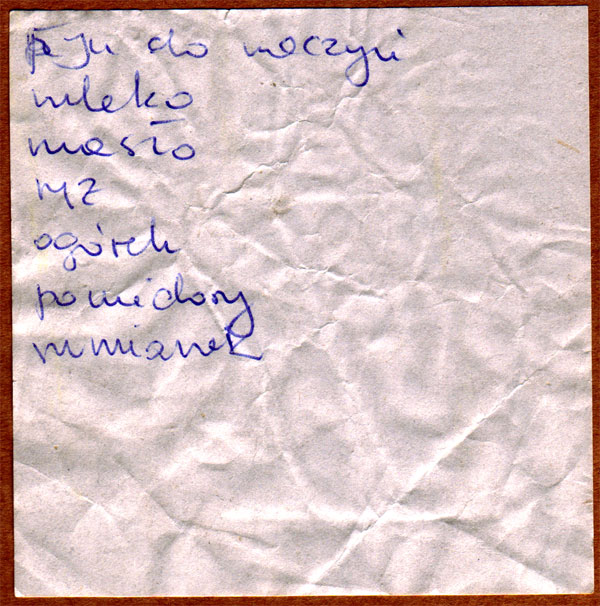 płyn do naczyń
mleko
masło
ryż
ogórek
pomidory
rumianek